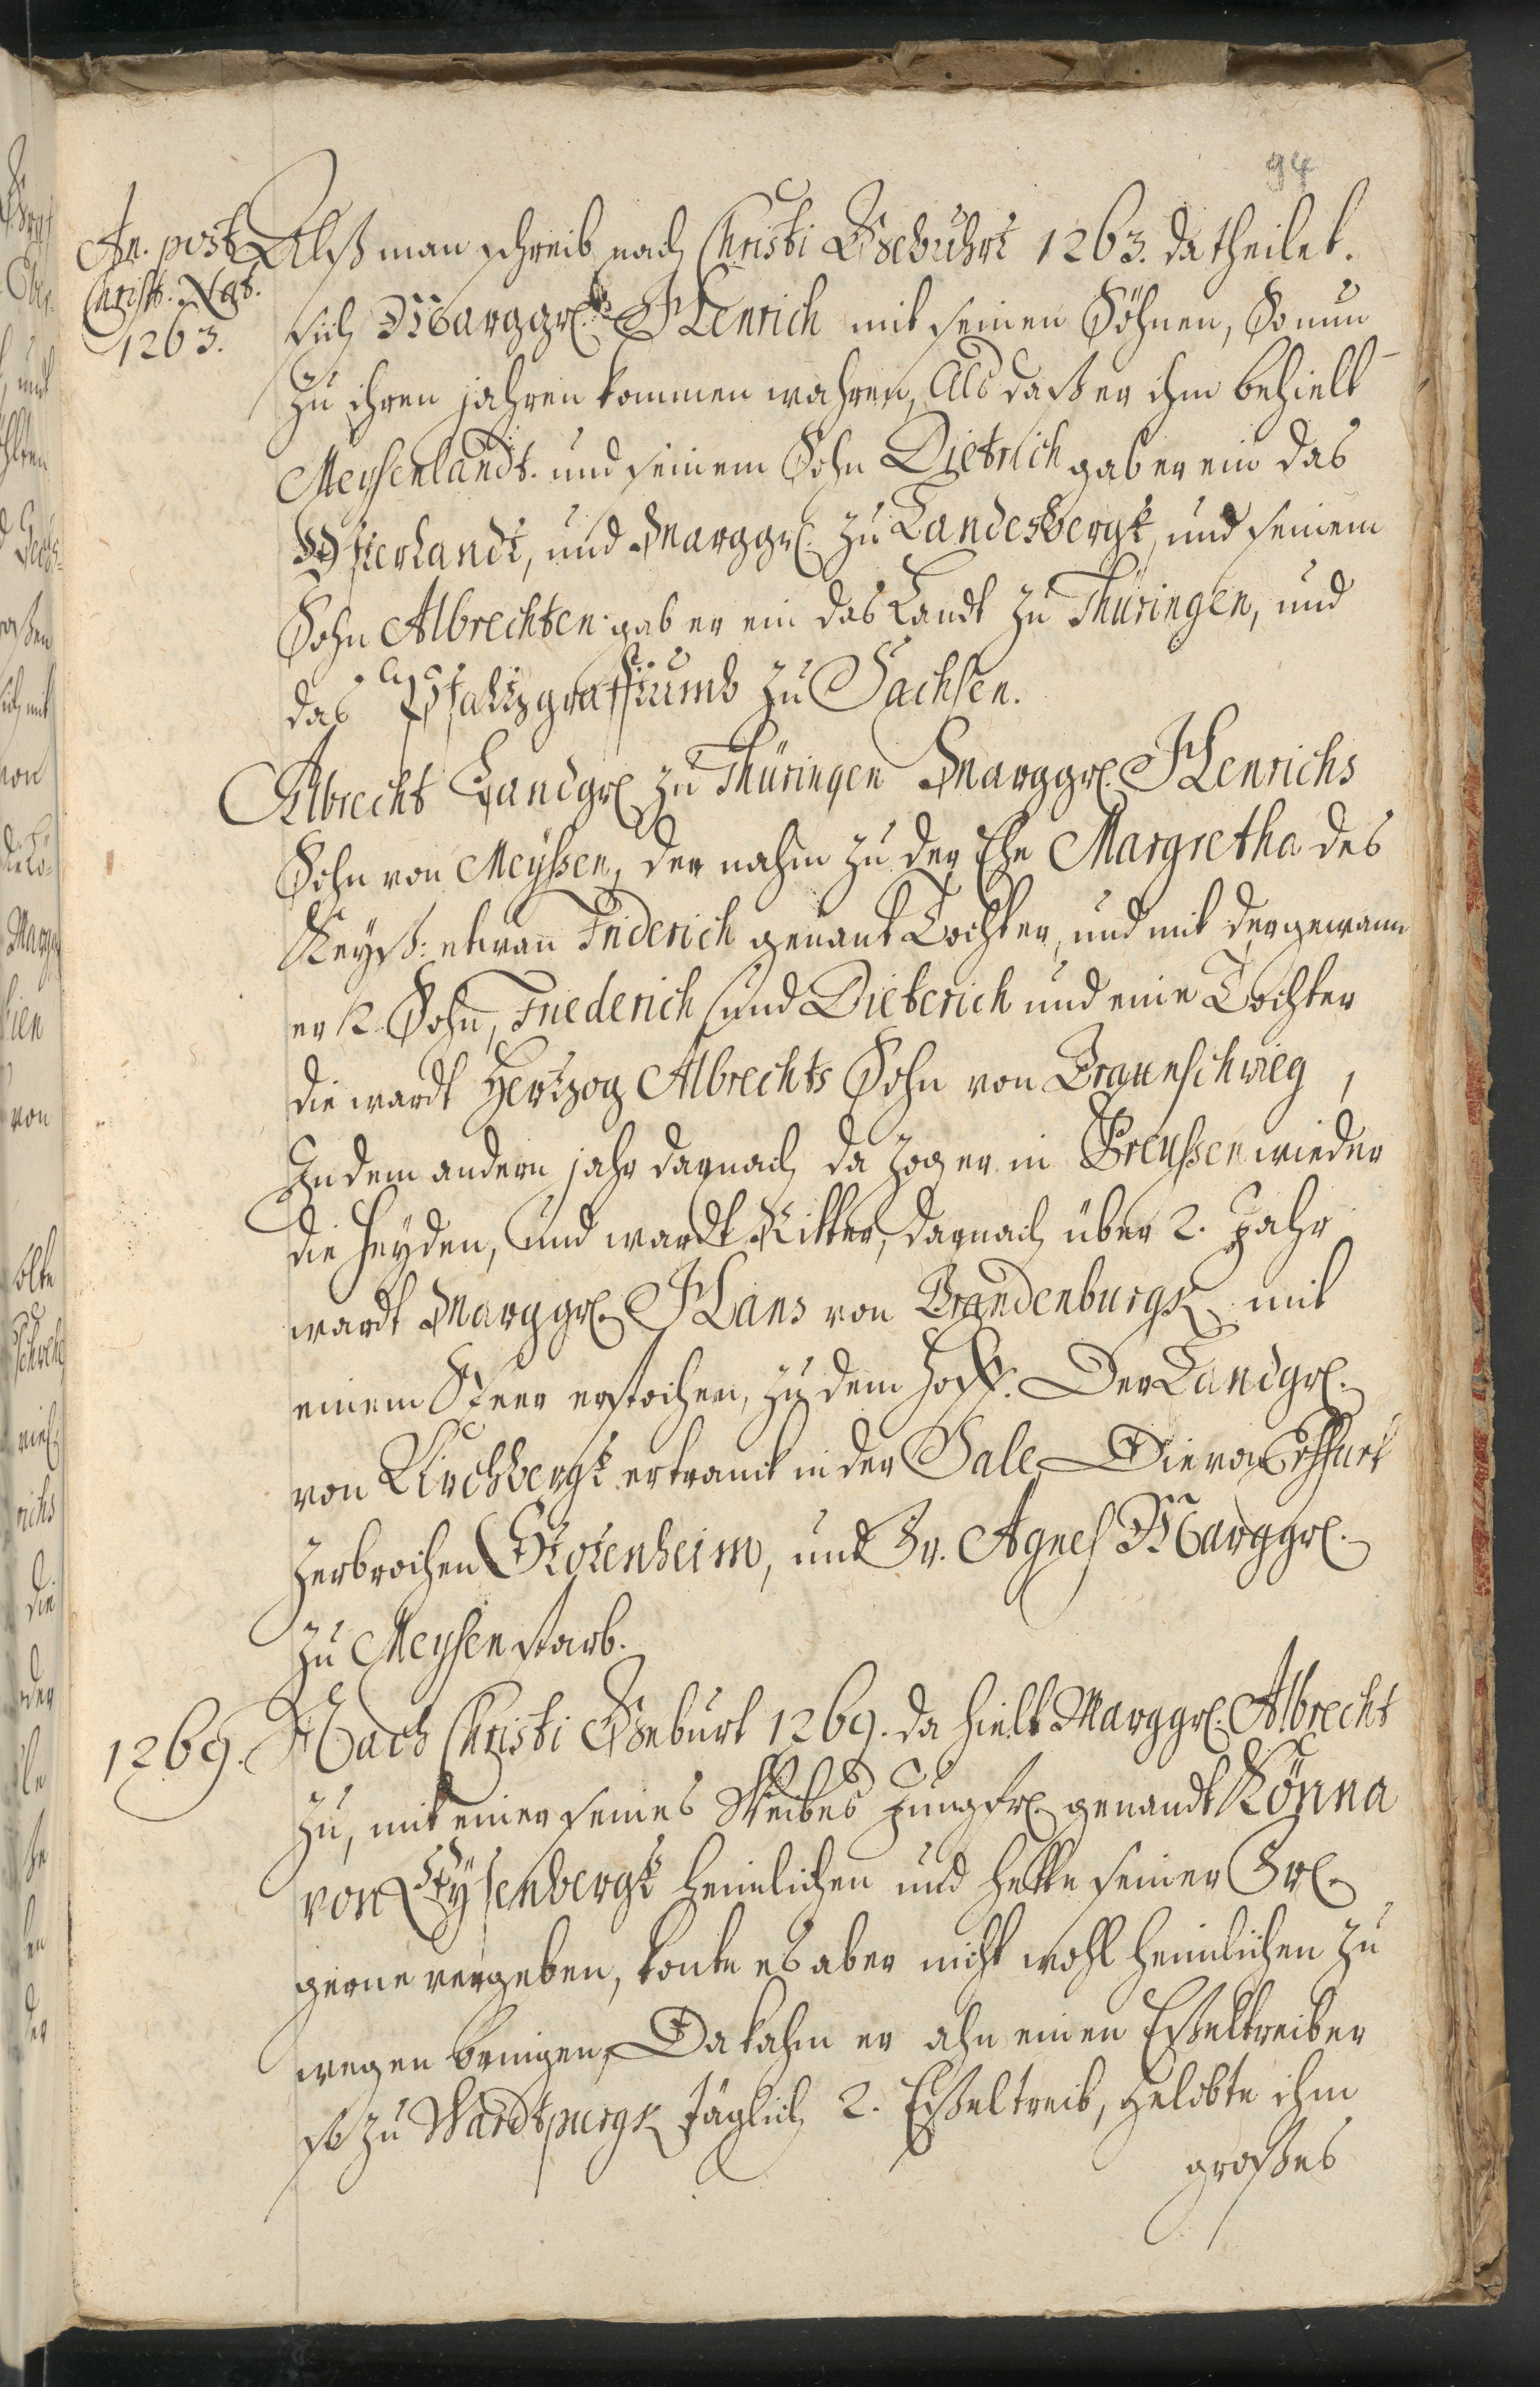 94
An. post
Christ. Nat.
1263.
Alß man schreib nach Christi Gebuhrt 1263. da theilet.
sich Marggr. Henrich mit seinen Söhnen, So nun
zu ihren jahren kommen wahren, Als daß er ihm behielt
Meysenlandt. und seinem Sohn Dietrich gab er ein das
Osterlandt, und Marggr. zu Landesbergk, und seinem
Sohn Albrechten gab er ein das Landt zu Thüringen, und
das Pfaltzgraffthumb zu Sachsen.
Albrecht Landgr zu Thüringen Marggr. Henrichs
Sohn von Meyßen, der nahm zu der Ehe Margretha des
Keyß: etwan Friderich genant Tochter, und mit der gewann
er 2. Söhn, Friederich und Dieterich und eine Tochter
die wardt Hertzog Albrechts Sohn von Braunschwieg,
In dem andern jahr darnach da zog er in Preußen wieder
die Heyden, und wardt Ritter, darnach über 2. Jahr
wardt Marggr. Hans von Brandenburgk mit
einem Speer erstochen, zu dem Hoff. Der Landgr.
von Kirchbergk ertranck in der Sale, Die von Erffurt
zerbrochen Stotenheim, und Fr. Agnes Marggr.
zu Meysen starb.
1269. Nach Christi Geburt 1269. da hielt Marggr. Albrecht
zu, mit einer seines Weibes Jungfr. genandt Könna
von Eysenbergk heimlichen und hette seiner Fr.
gerne vergeben, konte es aber nicht wohl heimlichen zu
wegen bringen, Da kahm er ahn einen Eßeltreiber
so zu Wardtpurgk täglich 2. Eßel treib, gelobte ihm
großes